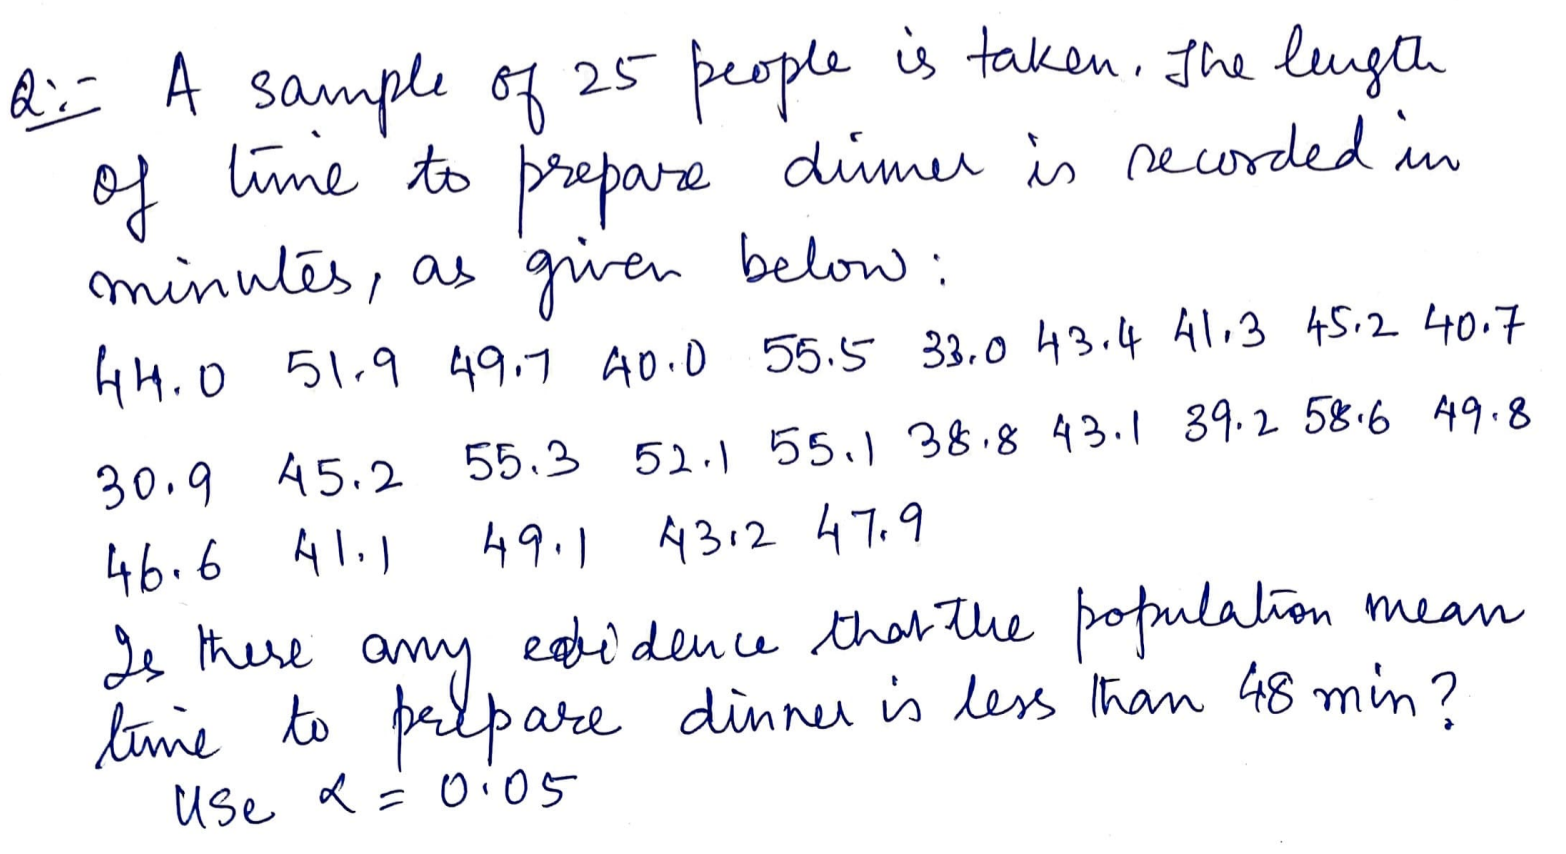 Q:- A sample of 25 people is taken. The length
of time to prepare dinner is recorded in
minutes, as given below:
44.0 51.9 49.7 40.0 55.5 33.0 43.4 41.3 45.2 40.7
30.9 45.2 55.3 52.1 55.1 38.8 43.1 39.2 58.6 49.8
46.6 41.1 49.1 43.2 47.9
Is there any evidence that the population mean
time to prepare dinner is less than 48 min?
Use α = 0.05